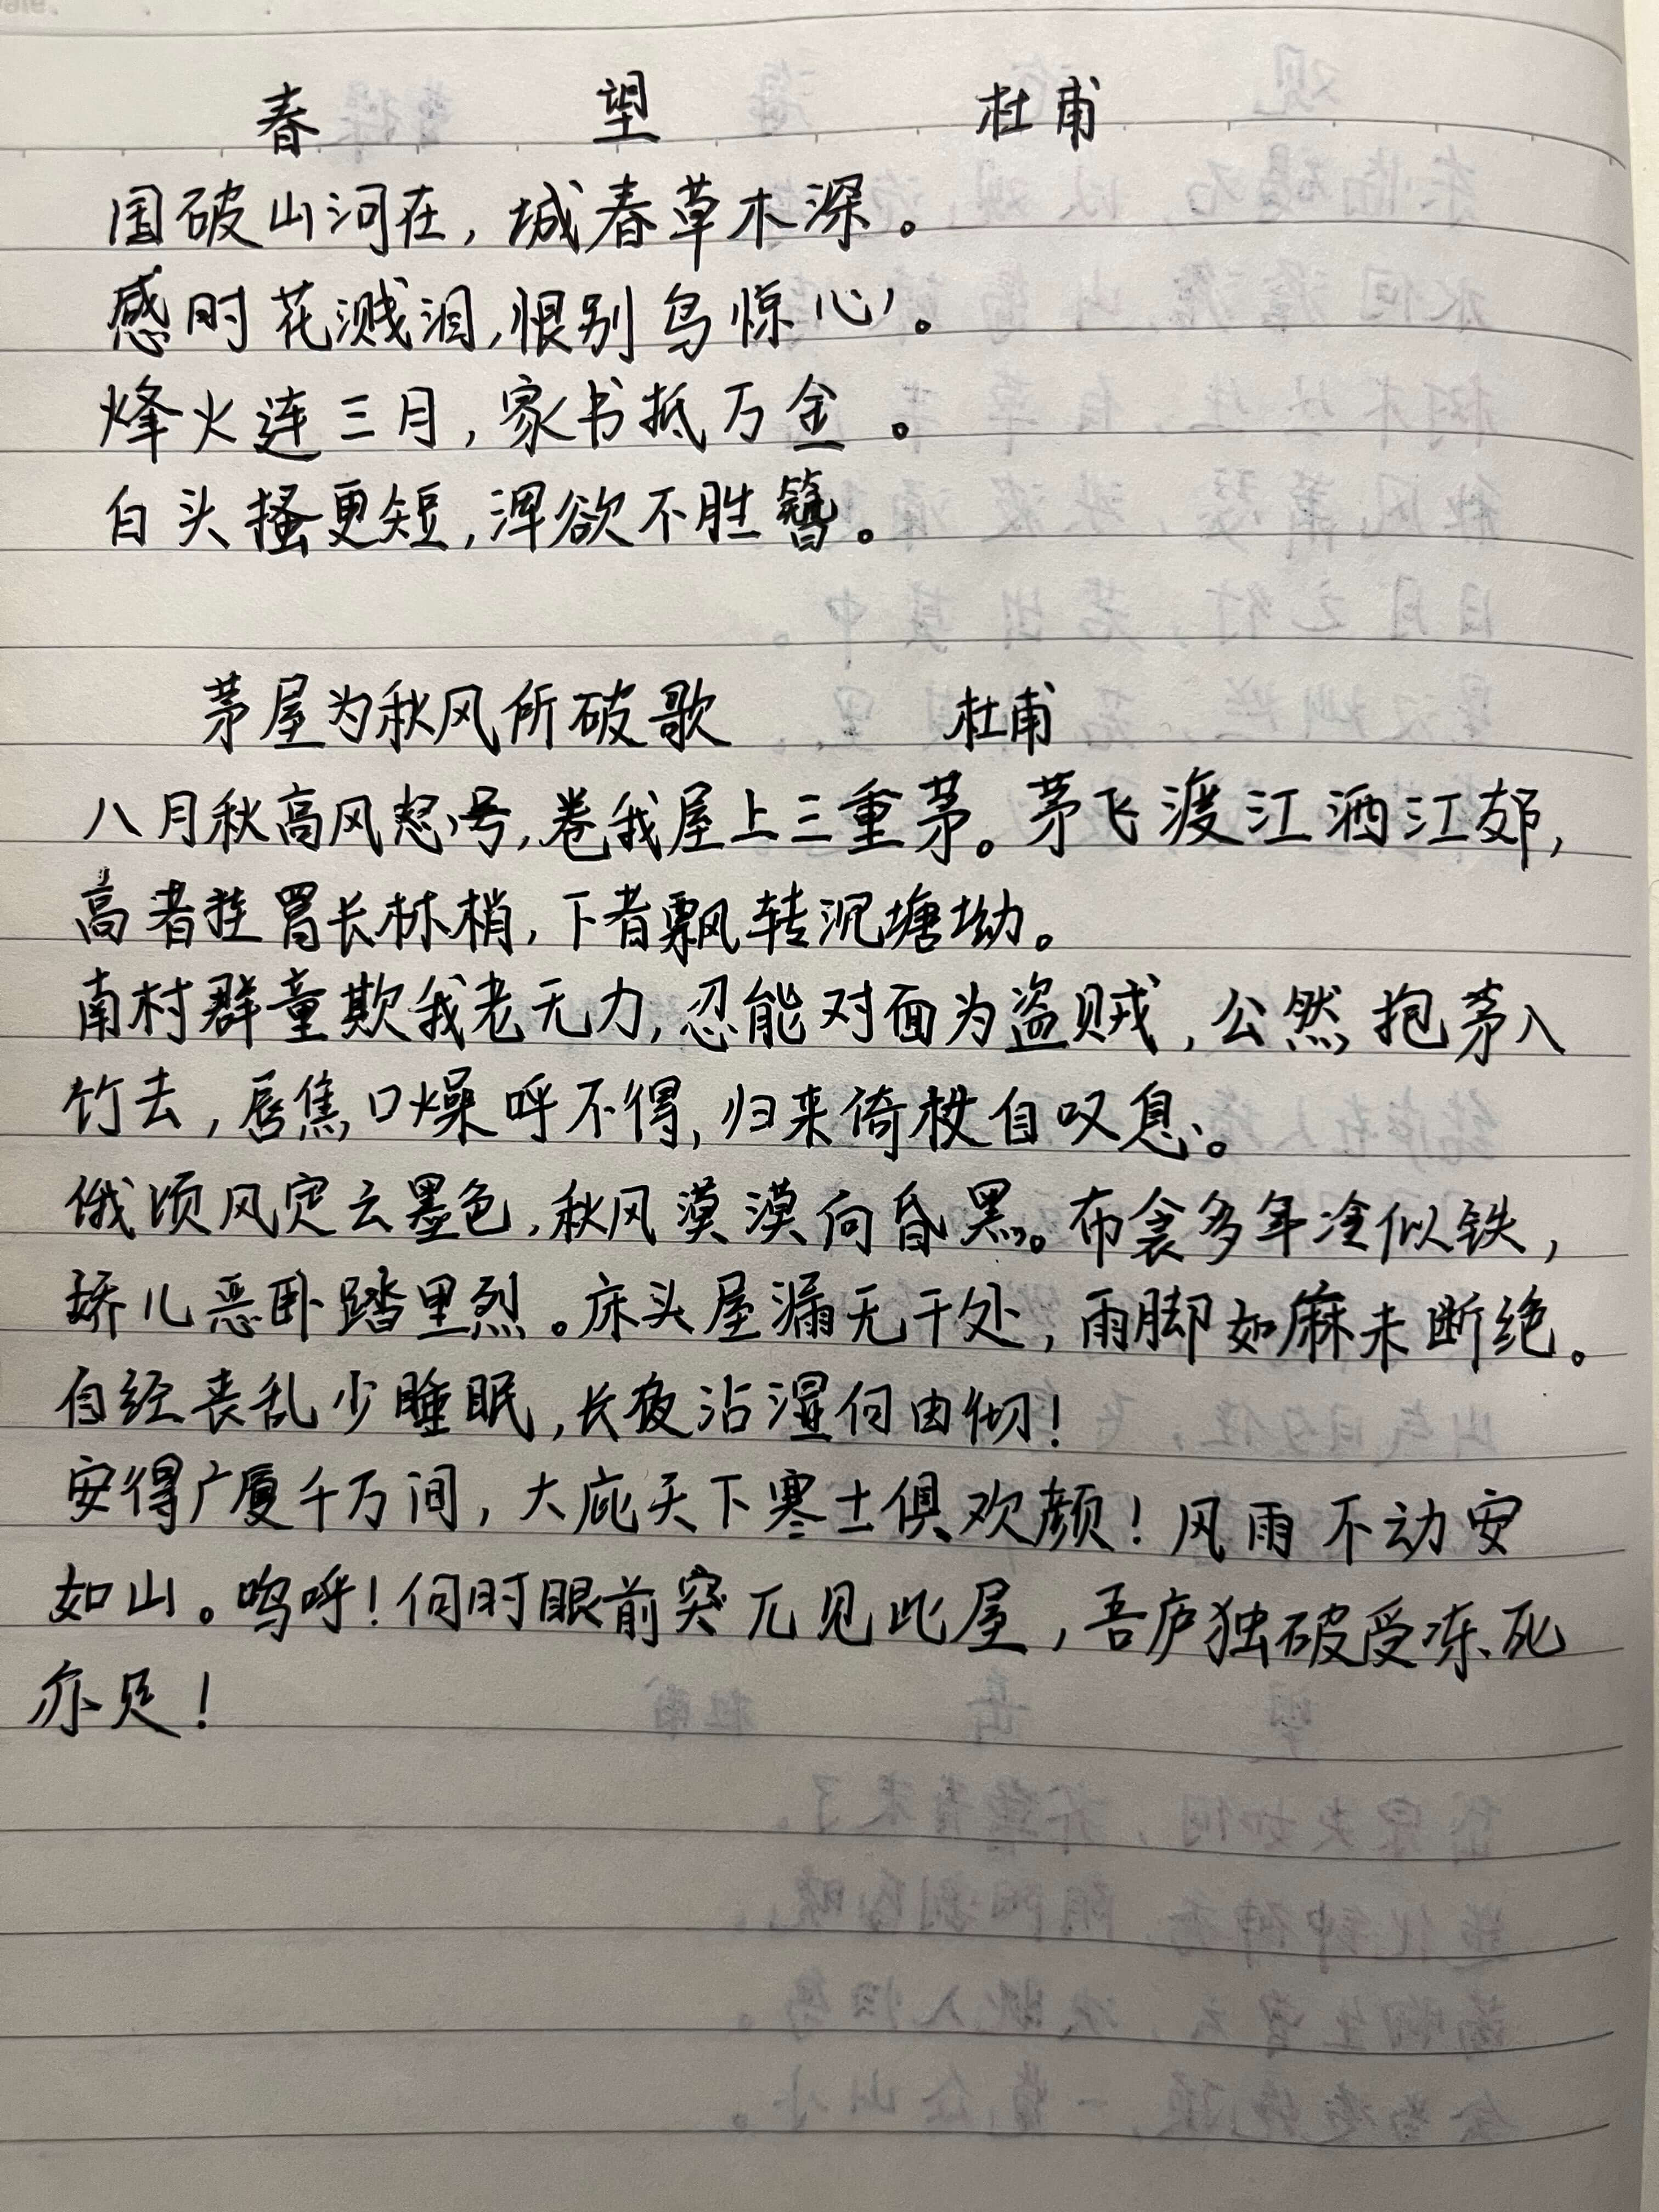 春 望 杜甫
国破山河在，城春草木深。
感时花溅泪，恨别鸟惊心。
烽火连三月，家书抵万金。
白头搔更短，浑欲不胜簪。
茅屋为秋风所破歌 杜甫
八月秋高风怒号，卷我屋上三重茅。茅飞渡江洒江郊，
高者挂罥长林梢，下者飘转沉塘坳。
南村群童欺我老无力，忍能对面为盗贼，公然抱茅入
竹去，唇焦口燥呼不得，归来倚杖自叹息。
俄顷风定云墨色，秋风漠漠向昏黑。布衾多年冷似铁，
娇儿恶卧踏里烈。床头屋漏无干处，雨脚如麻未断绝。
自经丧乱少睡眠，长夜沾湿何由彻！
安得广厦千万间，大庇天下寒士俱欢颜！风雨不动安
如山。呜呼！何时眼前突兀见此屋，吾庐独破受冻死
亦足！